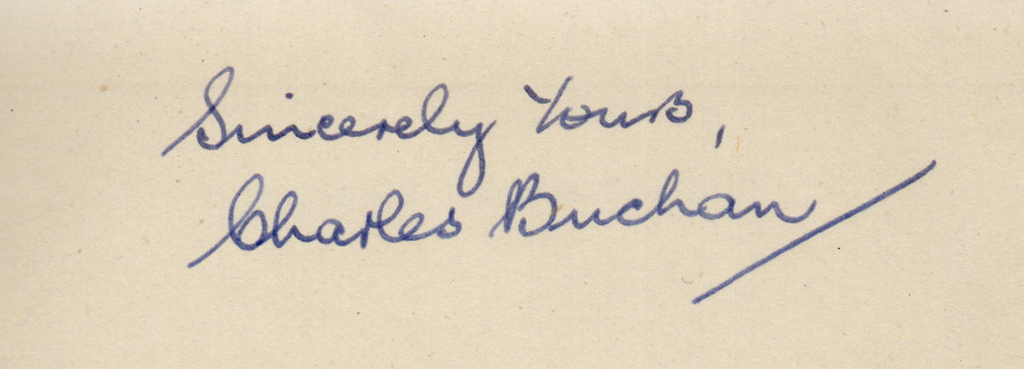 Sincerely Yours,
Charles Buchan